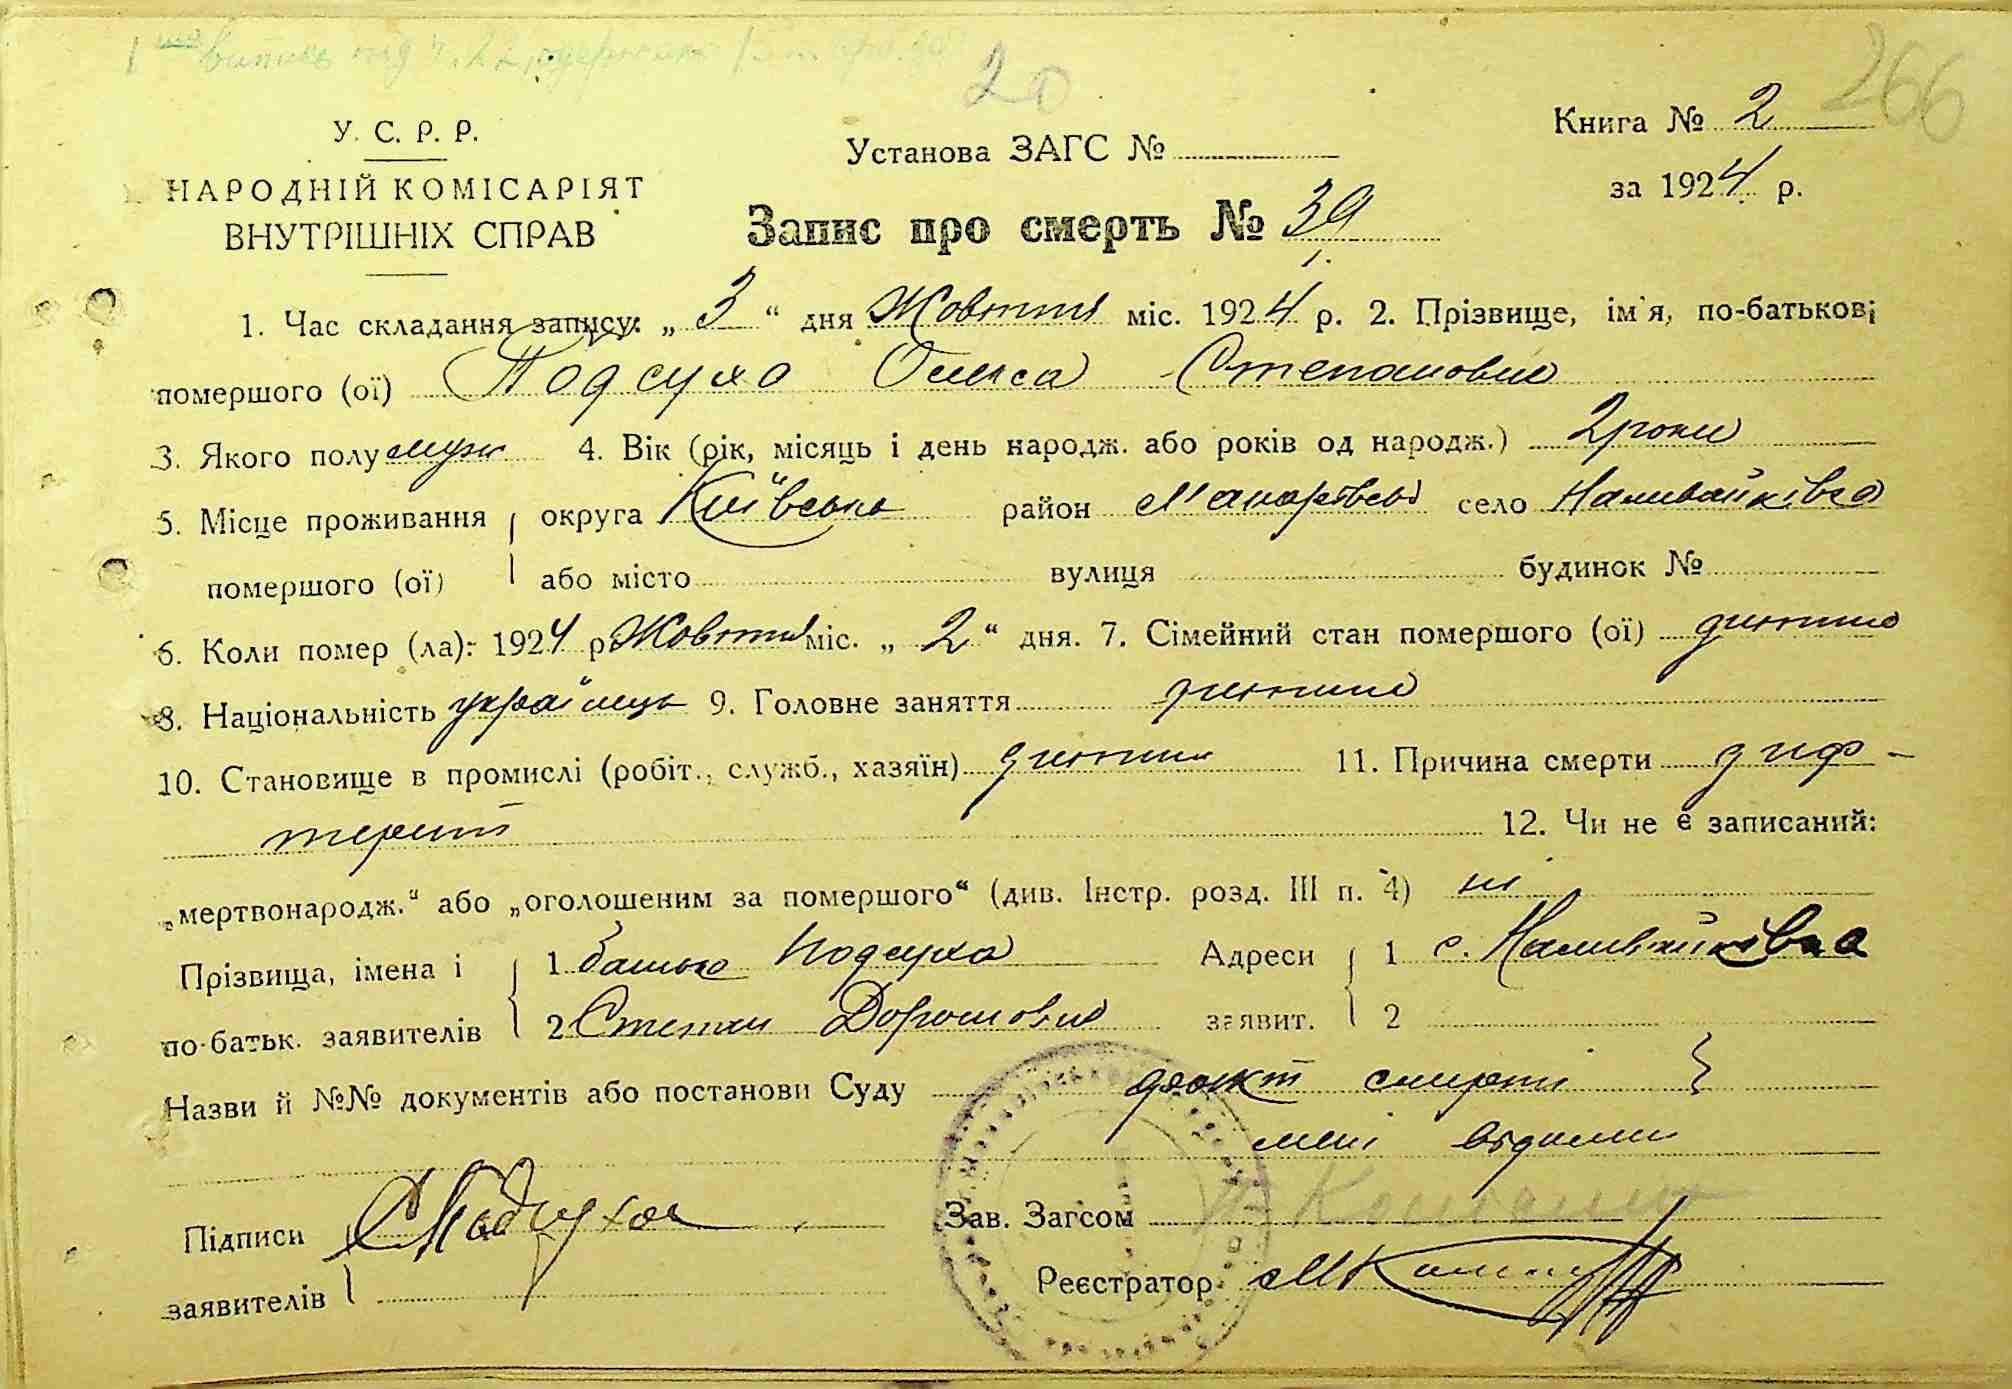 20
266
У. С. Р. Р.
НАРОДНІЙ КОМІСАРІЯТ
ВНУТРІШНІХ СПРАВ
Установа ЗАГС №
Книга № 2
за 1924 р.
Запис про смерть № 39
1. Час складання запису: „ 3 “ дня Жовтня міс. 1924 р. 2. Прізвище, ім'я, по-батькові
помершого (ої) Подсуха Олекса Степанович
3. Якого полу муж 4. Вік (рік, місяць і день народж. або років од народж.) 2 роки
5. Місце проживання округа Київська район Макарівськ село Наливайківка
помершого (ої) або місто вулиця будинок №
6. Коли помер (ла): 1924 р Жовтня міс. „ 2 “ дня. 7. Сімейний стан помершого (ої) дитина
8. Національність українець 9. Головне заняття дитина
10. Становище в промислі (робіт., служб., хазяїн) дитина 11. Причина смерти диф-
терит 12. Чи не є записаний:
„мертвонародж.“ або „оголошеним за помершого“ (див. Інстр. розд. III п. 4) ні
Прізвища, імена і 1 батько Подсуха Адреси 1 с. Наливайківка
по-батьк. заявителів 2 Степан Дорошович заявит. 2
Назви й №№ документів або постанови Суду факт смерті
мені відомий
Підписи С Подсуха Зав. Загсом
заявителів Реєстратор